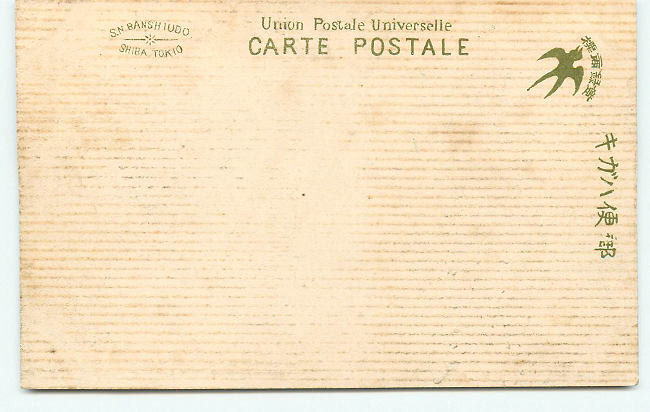 S.N.BANSHIUDO
SHIBA TOKIO
Union Postale Universelle
CARTE POSTALE
登録商標
郵便ハガキ